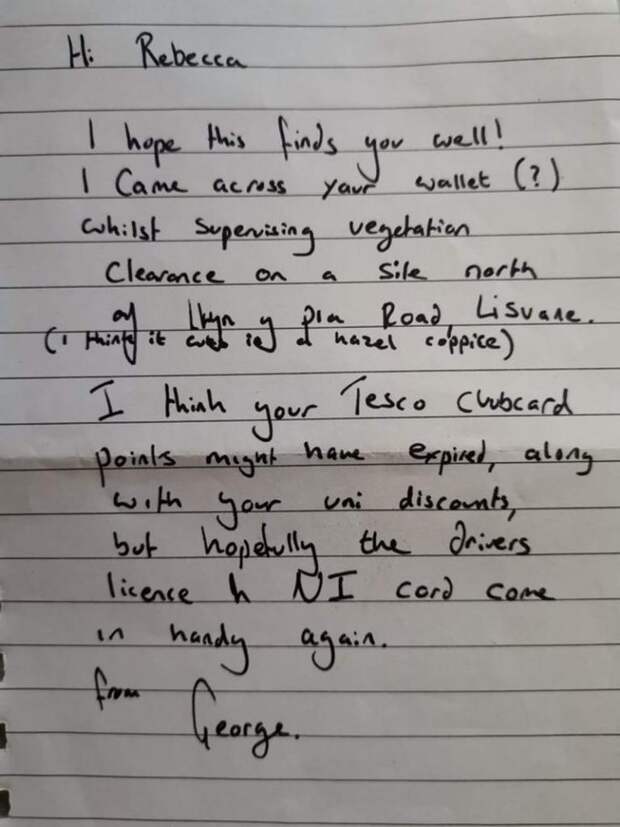 Hi Rebecca
I hope this finds you well!
I Came across your wallet (?)
whilst supervising vegetation
Clearance on a site north
of y Road, Lisvane.
(I think it was in a hazel coppice)
I think your Tesco Clubcard
points might have expired, along
with your uni discounts,
but hopefully the drivers
licence & NI card come
in handy again.
from
George.